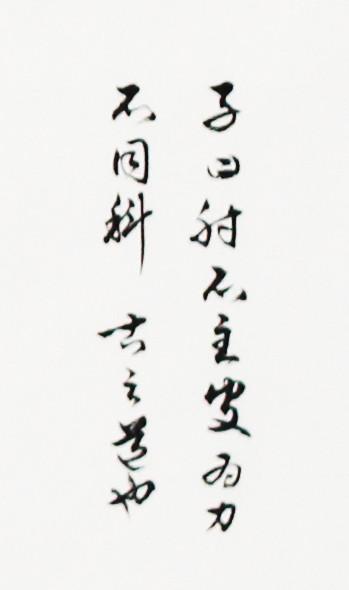 子曰射不主皮為力
不同科 古之道也